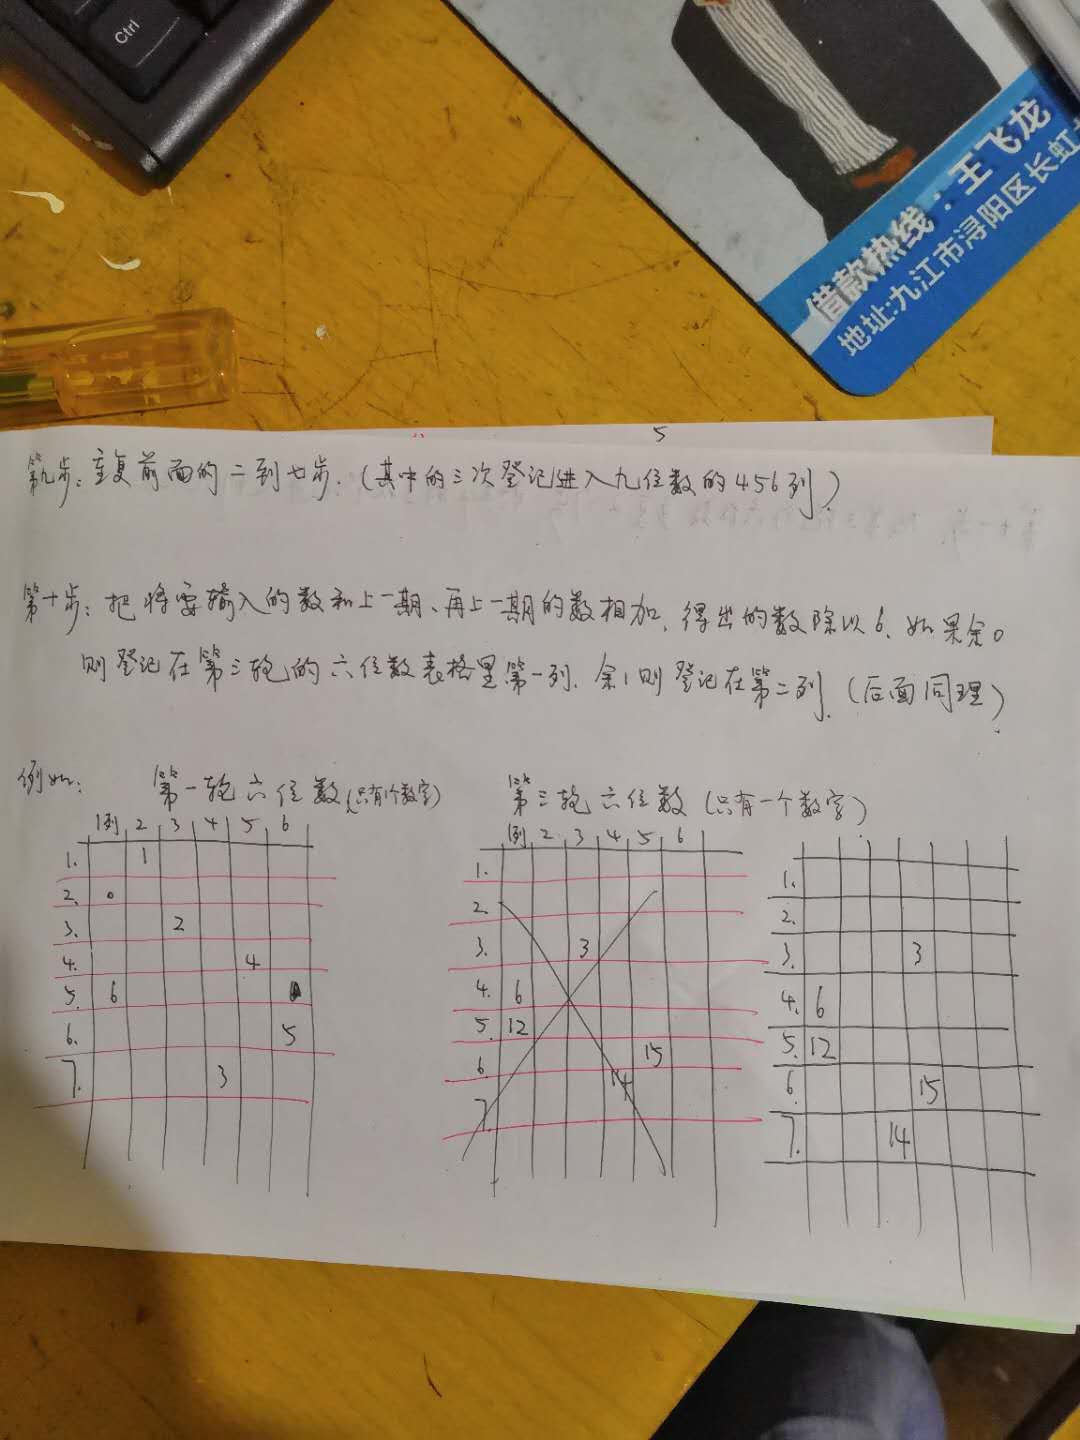 Ctrl
借款热线：王飞龙
地址:九江市浔阳区长虹
5
第九步：重复前面的二到七步.（其中的三次登记进入九位数的456列）
第十步：把将要输入的数和上一期、再上一期的数相加，得出的数除以6.如果余0
则登记在第三轮的六位数表格里第一列.余1则登记在第二列.（后面同理）
例如： 第一轮六位数(只有1个数字) 第三轮六位数（只有一个数字）
1列 2 3 4 5 6
1. 1
2. 0
3. 2
4. 4
5. 6
6. 5
7. 3
1列 2 3 4 5 6
1.
2.
3. 3
4. 6
5. 12
6. 15
7. 14
1.
2.
3. 3
4. 6
5. 12
6. 15
7. 14